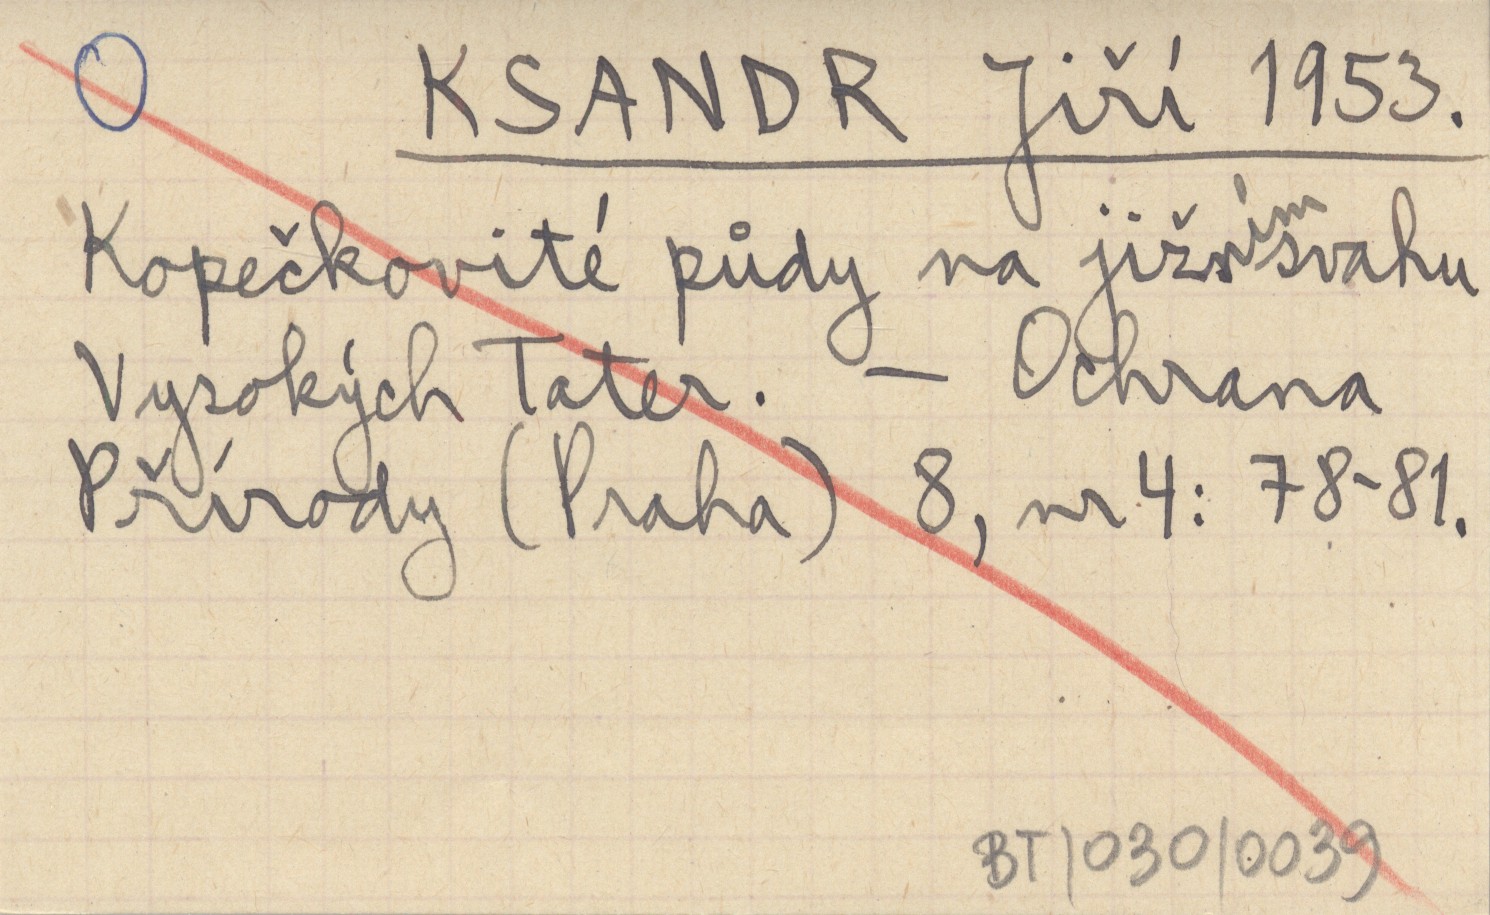 KSANDR Jiří 1953.
Kopečkovité půdy na jižním svahu
Vysokých Tater. — Ochrana
Přírody (Praha) 8, nr 4: 78-81.
BT/030/0039